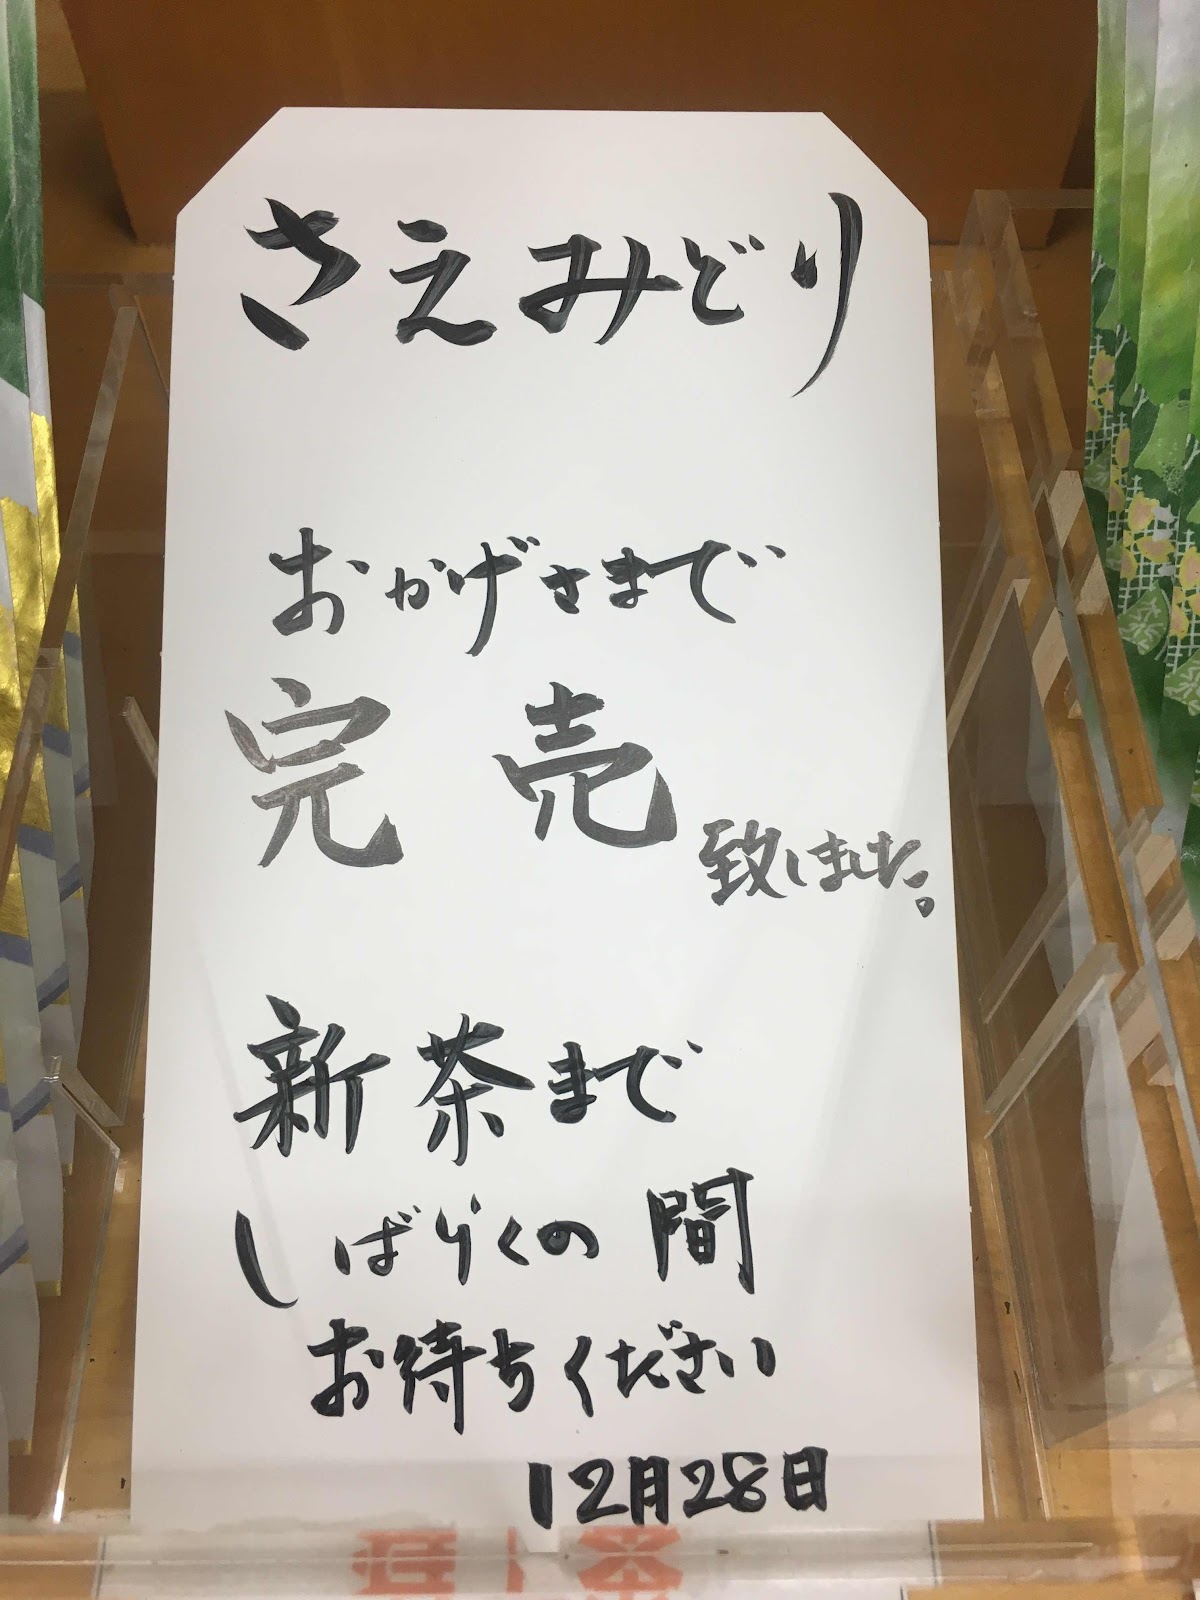 さえみどり
おかげさまで
完売
致しました。
新茶まで
しばらくの間
お待ちください
12月28日